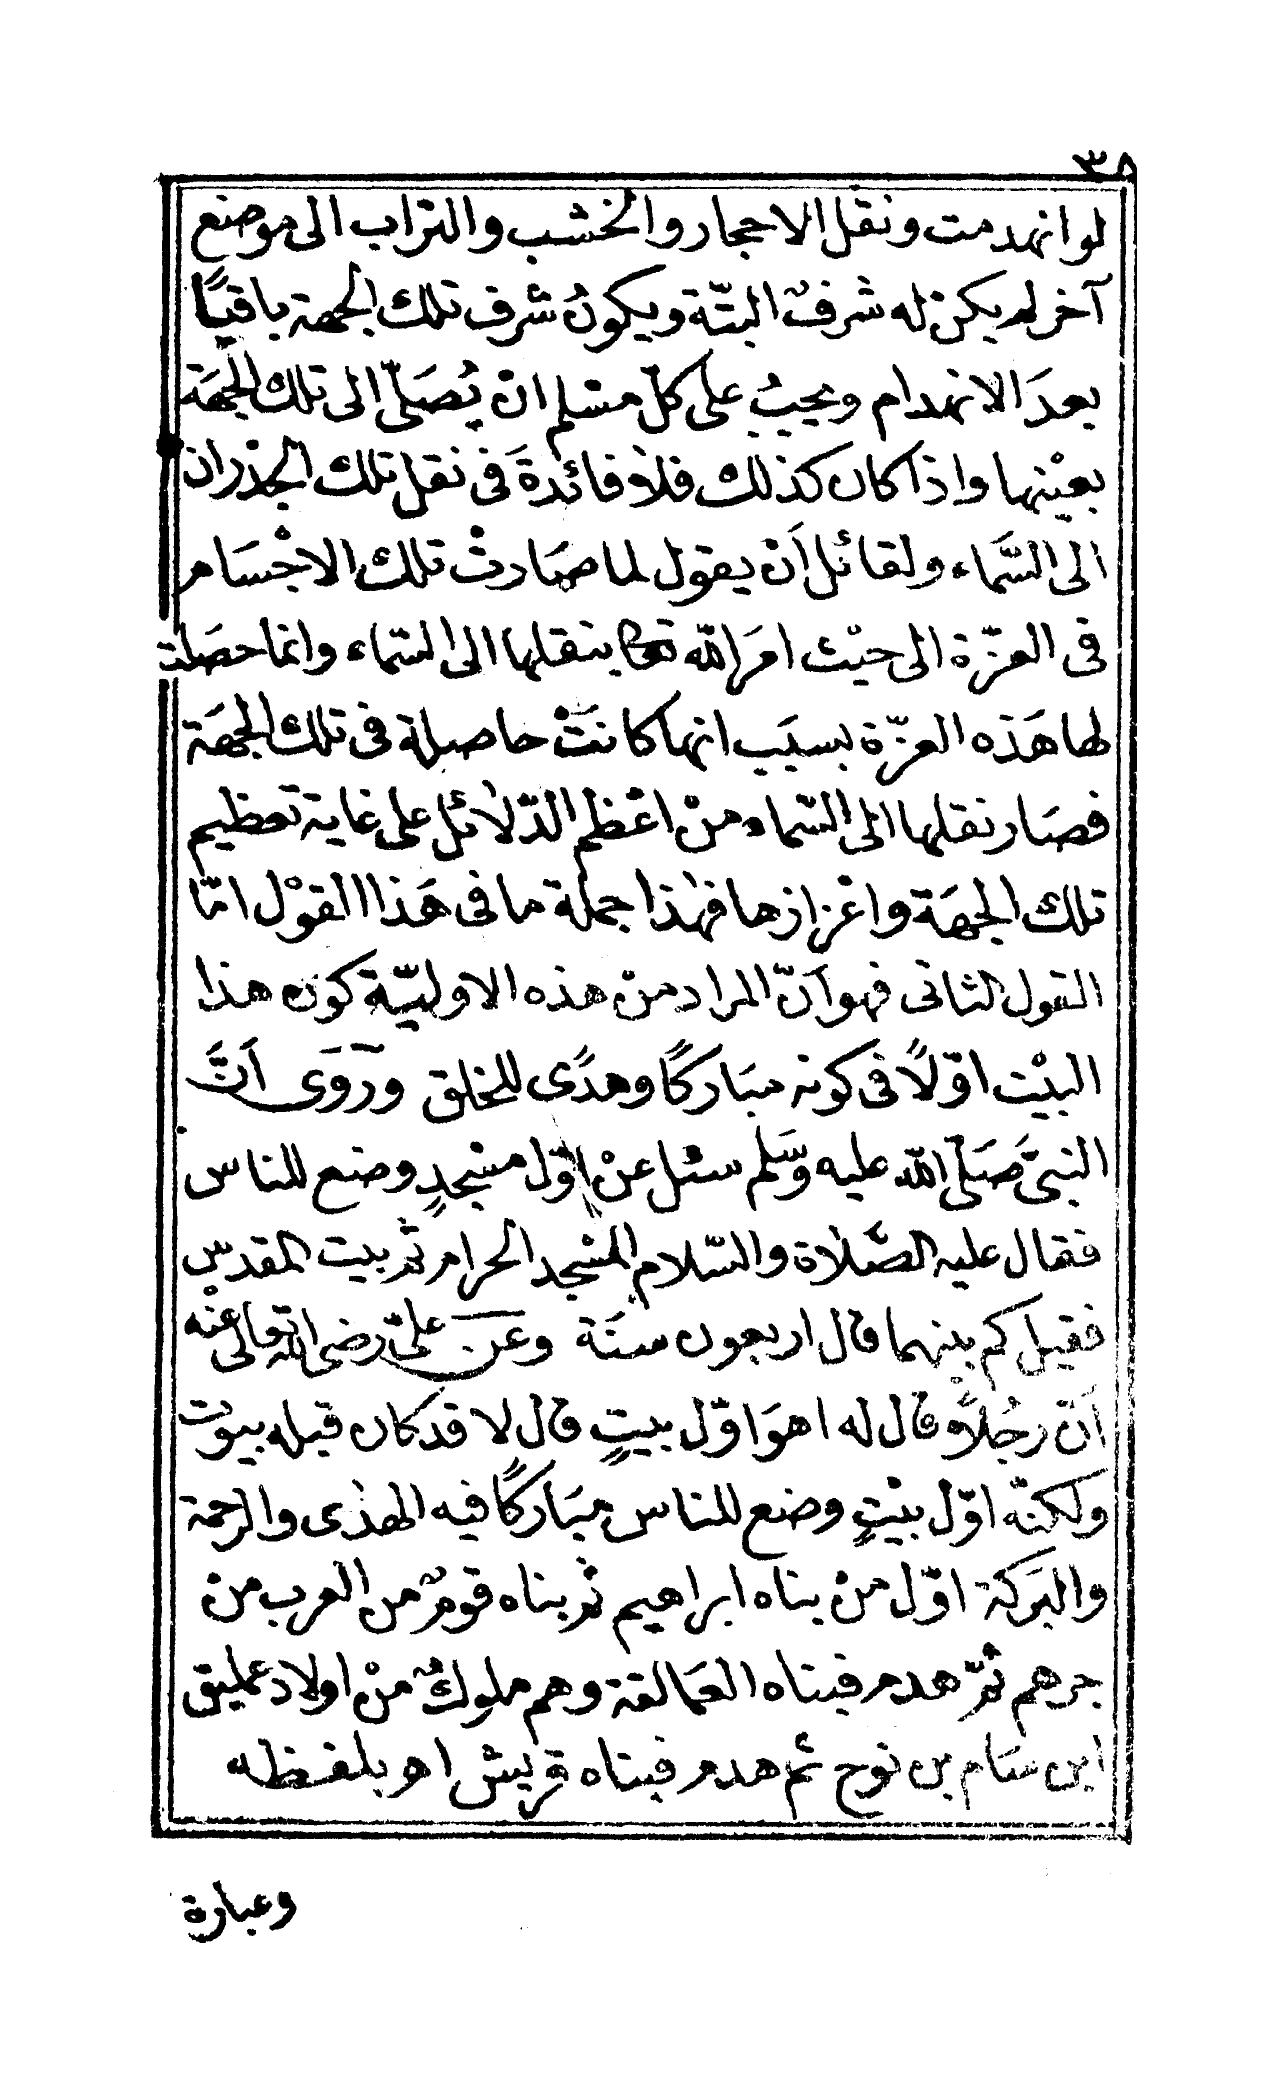 ٣٨
لو انهدمت ونقل الاحجار والخشب والتراب الى موضع
آخر لم يكن له شرفٌ البتّة ويكونُ شرف تلك الجهة باقيًا
بعدَ الانهدام ويجبُ على كلّ مسْلم انْ يُصَلّى الى تلك الجهَة
بعيْنها واذا كان كذلك فلا فائدةَ فى نقل تلك الجدْران
الى السَّماء ولقائل اَنْ يقول لما صَارتْ تلك الاجْسَام
فى العزّة الى حيْث امَر الله تعالى بنقلها الى السّماء وانما حصَلت
لها هَذه العزّة بسبَب انها كانَتْ حاصلة فى تلك الجهَة
فصَار نقلها الى السّماء منْ اعْظم الدّلائل على غاية تعظيم
تلك الجهَة واعْزازها فهٰذا جملة ما فى هَذا القوْل امّا
القول الثانى فهو اَنّ المراد منْ هذه الاوليّة كون هذا
البيْت اوّلاً فى كونه مبَاركًا وهدًى للخلق ورَوَى اَنَّ
النبىَّ صَلّى الله عليه وَسَلم سئل عنْ اوّل مسْجدٍ وضع للناس
فقال عليه الصَّلاة والسّلام المسْجد الحرام ثم بيت المقدس
فقيل كم بينهما قال اربعون سنَة وعَن علىّ رضى الله تعالى عنْه
اَنّ رجُلاً قال له اهوَ اوّل بيتٍ قال لا قد كان قبله بيوُت
ولكنّه اوّل بيْتٍ وضع للناس مبَاركًا فيه الهدٰى والرحمة
والبَركة اوّل منْ بناه ابراهيم ثم بناه قومٌ من العرب من
جرهم ثمّ هدم فبناه العَمالقة وهم ملوكٌ منْ اولاد عمليق
ابن سَام بن نوح ثم هدم فبناه قريش اهـ بلفظه
وعبارة